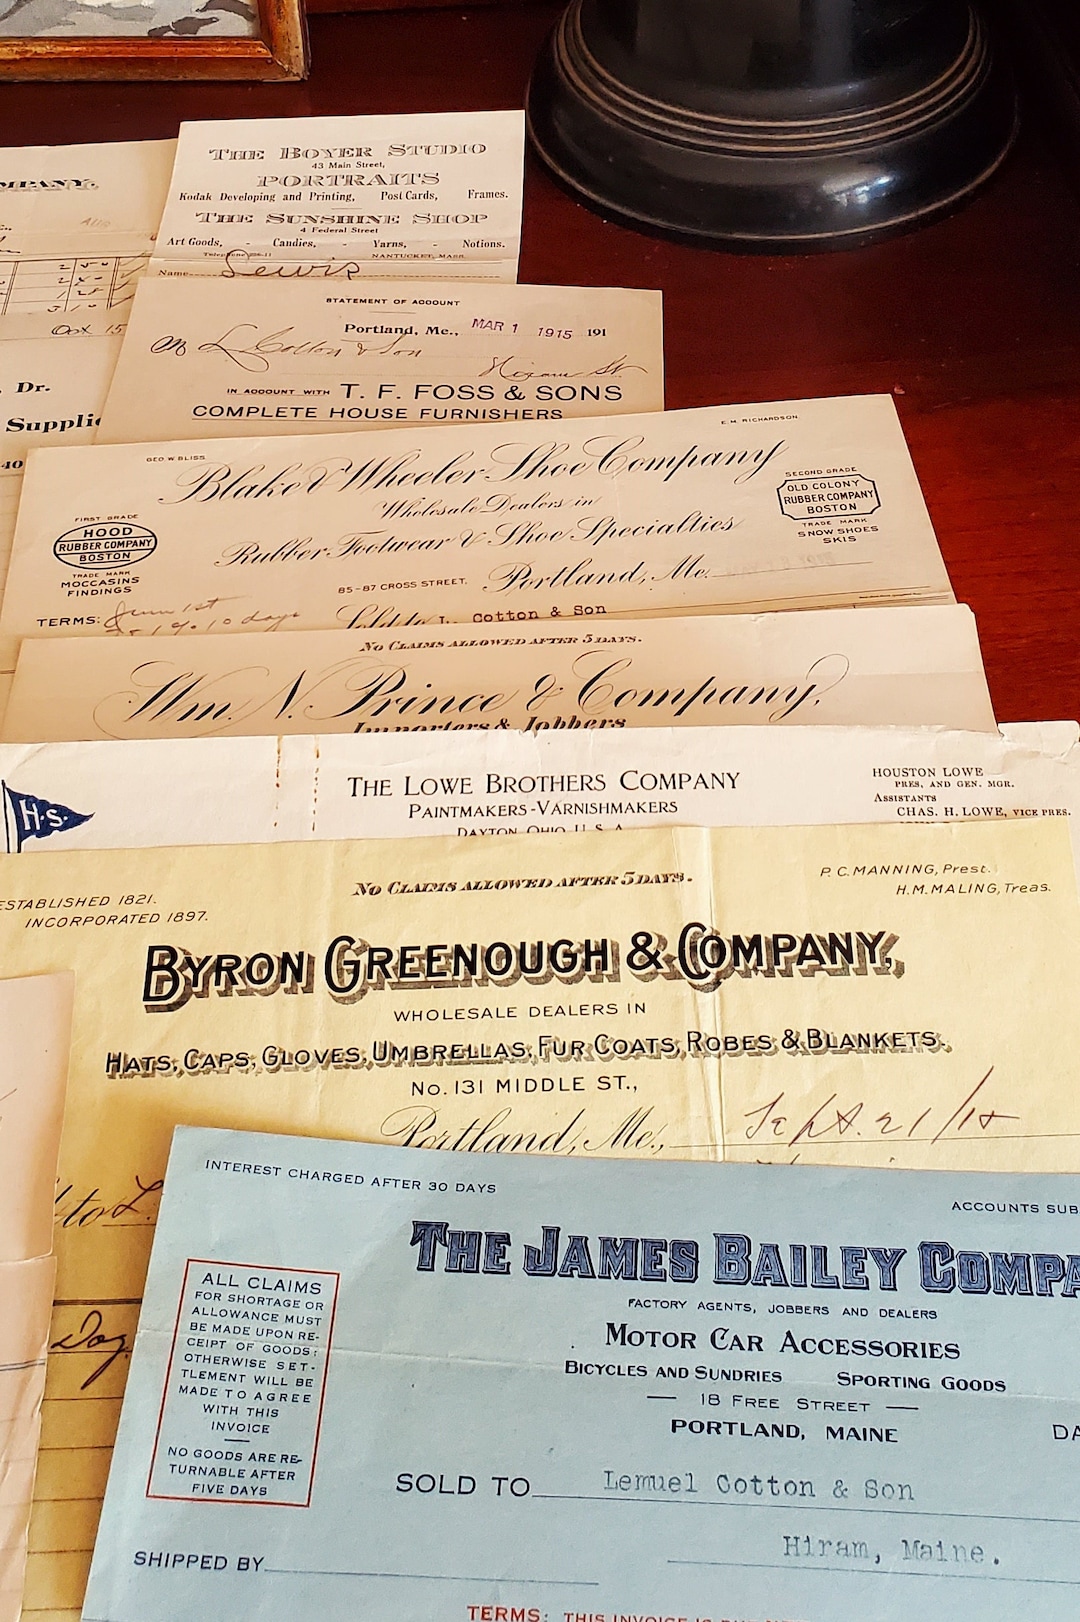 THE BOYER STUDIO
43 Main Street,
PORTRAITS
Kodak Developing and Printing, Post Cards, Frames.
THE SUNSHINE SHOP
4 Federal Street
Art Goods, - Candies, - Yarns, - Notions.
NANTUCKET, MASS.
Name Lewis
MPANY.
Dr.
Supplie
40
Oct 15
STATEMENT OF ACCOUNT
Portland, Me., MAR 1 1915 191
M L Cotton & Son
Hiram
IN ACCOUNT WITH T. F. FOSS & SONS
COMPLETE HOUSE FURNISHERS
GEO. W. BLISS
E. M. RICHARDSON
Blake & Wheeler Shoe Company
Wholesale Dealers in
Rubber Footwear & Shoe Specialties
85-87 CROSS STREET. Portland, Me.
FIRST GRADE
HOOD
RUBBER COMPANY
BOSTON
TRADE MARK
MOCCASINS
FINDINGS
SECOND GRADE
OLD COLONY
RUBBER COMPANY
BOSTON
TRADE MARK
SNOW SHOES
SKIS
TERMS: 1st
10 days
Sold to L. Cotton & Son
NO CLAIMS ALLOWED AFTER 5 DAYS.
Wm. N. Prince & Company,
Importers & Jobbers
H.S.
THE LOWE BROTHERS COMPANY
PAINTMAKERS-VARNISHMAKERS
DAYTON, OHIO, U.S.A.
HOUSTON LOWE
PRES, AND GEN. MGR.
ASSISTANTS
CHAS. H. LOWE, VICE PRES.
ESTABLISHED 1821.
INCORPORATED 1897.
NO CLAIMS ALLOWED AFTER 5 DAYS.
P. C. MANNING, Prest.
H. M. MALING, Treas.
BYRON GREENOUGH & COMPANY,
WHOLESALE DEALERS IN
HATS, CAPS, GLOVES, UMBRELLAS, FUR COATS, ROBES & BLANKETS.
No. 131 MIDDLE ST.,
Portland, Me., Sept. 21/15
to L.
INTEREST CHARGED AFTER 30 DAYS
ACCOUNTS SUB
THE JAMES BAILEY COMPA
FACTORY AGENTS, JOBBERS AND DEALERS
MOTOR CAR ACCESSORIES
BICYCLES AND SUNDRIES SPORTING GOODS
— 18 FREE STREET —
PORTLAND, MAINE
DA
ALL CLAIMS
FOR SHORTAGE OR
ALLOWANCE MUST
BE MADE UPON RE-
CEIPT OF GOODS;
OTHERWISE SET-
TLEMENT WILL BE
MADE TO AGREE
WITH THIS
INVOICE
NO GOODS ARE RE-
TURNABLE AFTER
FIVE DAYS
SOLD TO Lemuel Cotton & Son
Hiram, Maine.
SHIPPED BY
TERMS: THIS INVOICE IS